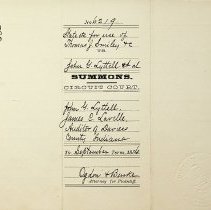 No 5219
State ex for use of
Thomas J. Smiley &c
vs.
John G. Lyttell et al
SUMMONS.
CIRCUIT COURT.
John G. Lyttell
James C. Lavelle
Auditor of Daviess
County Indiana
To September Term 1886
Ogdon &
Attorney for Plaintiff.